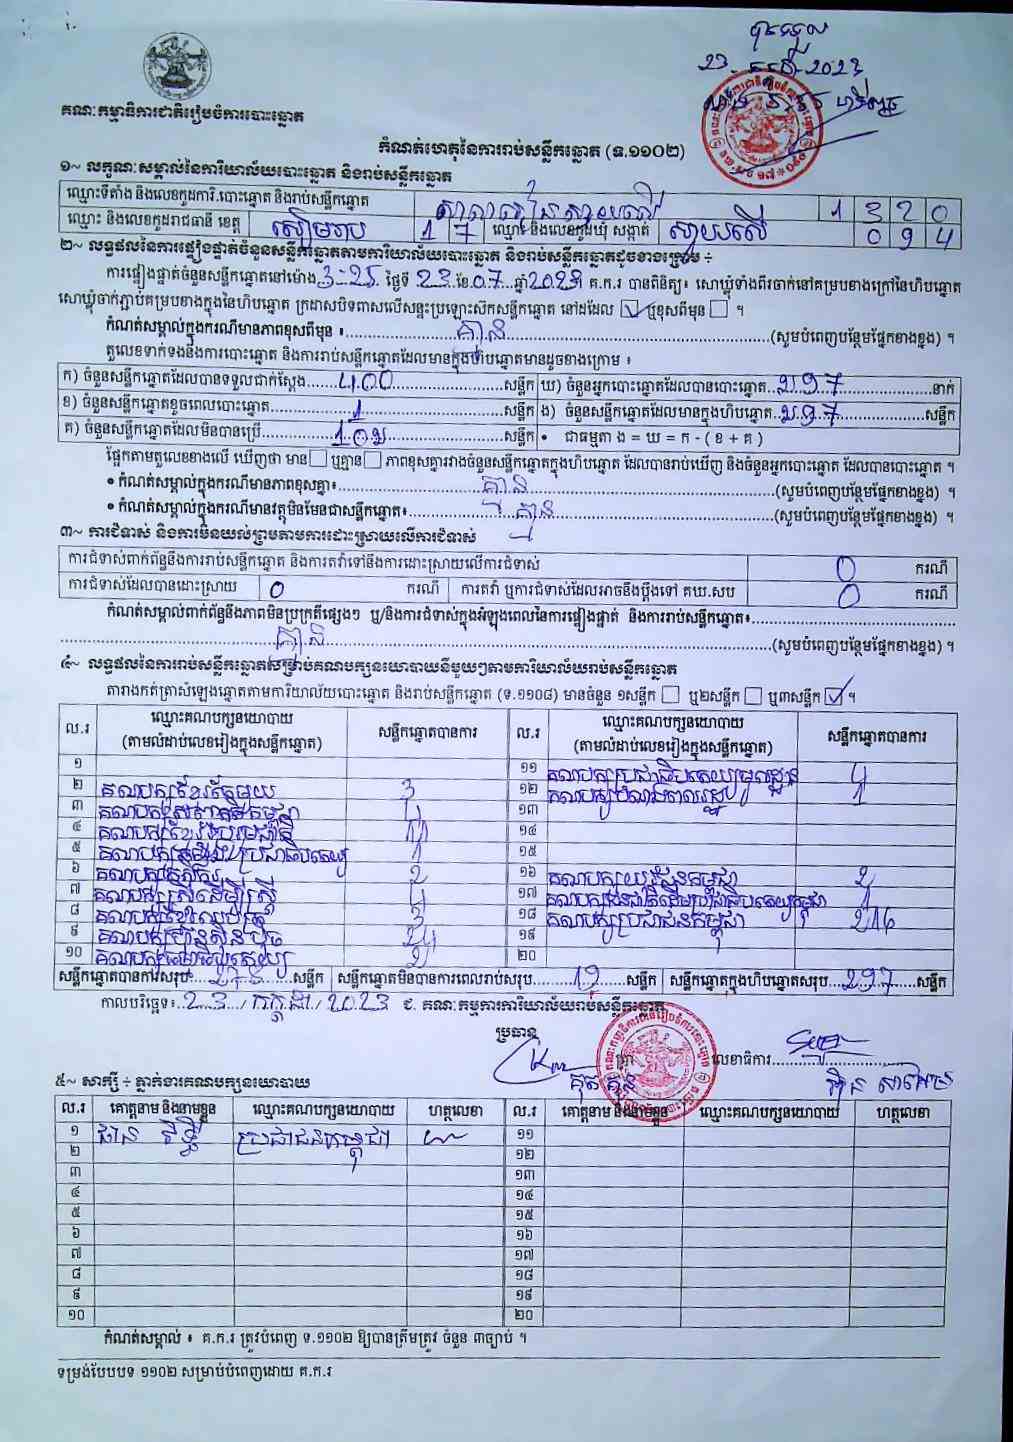 បានទទួល
23 កក្កដា 2023
គណៈកម្មាធិការជាតិរៀបចំការបោះឆ្នោត
កំណត់ហេតុនៃការរាប់សន្លឹកឆ្នោត (ទ.១១០២)
១~ លក្ខណៈសម្គាល់នៃការិយាល័យបោះឆ្នោត និងរាប់សន្លឹកឆ្នោត
ឈ្មោះទីតាំង និងលេខកូដការិ.បោះឆ្នោត និងរាប់សន្លឹកឆ្នោត សាលារៀនស្វាយលើ 1 3 2 0
ឈ្មោះ និងលេខកូដរាជធានី ខេត្ត សៀមរាប 1 7 ឈ្មោះ និងលេខកូដឃុំ សង្កាត់ ស្វាយលើ 0 9 4
២~ លទ្ធផលនៃការផ្ទៀងផ្ទាត់ចំនួនសន្លឹកឆ្នោតតាមការិយាល័យបោះឆ្នោត និងរាប់សន្លឹកឆ្នោតដូចខាងក្រោម ÷
ការផ្ទៀងផ្ទាត់ចំនួនសន្លឹកឆ្នោតនៅម៉ោង 3-25 ថ្ងៃទី 23 ខែ 07 ឆ្នាំ 2023 គ.ក.រ បានពិនិត្យ៖ សោឃ្លុំទាំងពីរចាក់នៅគម្របខាងក្រៅនៃហិបឆ្នោត
សោឃ្លុំចាក់ភ្ជាប់គម្របខាងក្នុងនៃហិបឆ្នោត ក្រដាសបិទពាសលើសន្ទះប្រឡោះសឹកសន្លឹកឆ្នោត នៅដដែល ☑ ឬខុសពីមុន ☐ ។
កំណត់សម្គាល់ក្នុងករណីមានភាពខុសពីមុន ៖ គ្មាន (សូមបំពេញបន្ថែមផ្នែកខាងខ្នង) ។
តួលេខទាក់ទងនឹងការបោះឆ្នោត និងការរាប់សន្លឹកឆ្នោតដែលមានក្នុងហិបឆ្នោតមានដូចខាងក្រោម ៖
ក) ចំនួនសន្លឹកឆ្នោតដែលបានទទួលជាក់ស្តែង 400 សន្លឹក ឃ) ចំនួនអ្នកបោះឆ្នោតដែលបានបោះឆ្នោត 297 នាក់
ខ) ចំនួនសន្លឹកឆ្នោតខូចពេលបោះឆ្នោត 1 សន្លឹក ង) ចំនួនសន្លឹកឆ្នោតដែលមានក្នុងហិបឆ្នោត 297 សន្លឹក
គ) ចំនួនសន្លឹកឆ្នោតដែលមិនបានប្រើ 102 សន្លឹក • ជាធម្មតា ង = ឃ = ក - ( ខ + គ )
ផ្អែកតាមតួលេខខាងលើ ឃើញថា មាន ☐ ឬគ្មាន ☐ ភាពខុសគ្នារវាងចំនួនសន្លឹកឆ្នោតក្នុងហិបឆ្នោត ដែលបានរាប់ឃើញ និងចំនួនអ្នកបោះឆ្នោត ដែលបានបោះឆ្នោត ។
• កំណត់សម្គាល់ក្នុងករណីមានភាពខុសគ្នា៖ គ្មាន (សូមបំពេញបន្ថែមផ្នែកខាងខ្នង) ។
• កំណត់សម្គាល់ក្នុងករណីមានវត្ថុមិនមែនជាសន្លឹកឆ្នោត៖ គ្មាន (សូមបំពេញបន្ថែមផ្នែកខាងខ្នង) ។
៣~ ការជំទាស់ និងការមិនយល់ព្រមតាមការដោះស្រាយលើការជំទាស់
ការជំទាស់ពាក់ព័ន្ធនឹងការរាប់សន្លឹកឆ្នោត និងការតវ៉ាទៅនឹងការដោះស្រាយលើការជំទាស់ 0 ករណី
ការជំទាស់ដែលបានដោះស្រាយ 0 ករណី ការតវ៉ា ឬការជំទាស់ដែលអាចនឹងប្តឹងទៅ គឃ.សប 0 ករណី
កំណត់សម្គាល់ពាក់ព័ន្ធនឹងភាពមិនប្រក្រតីផ្សេងៗ ឬ/និងការជំទាស់ក្នុងអំឡុងពេលនៃការផ្ទៀងផ្ទាត់ និងការរាប់សន្លឹកឆ្នោត៖
គ្មាន (សូមបំពេញបន្ថែមផ្នែកខាងខ្នង) ។
៤~ លទ្ធផលនៃការរាប់សន្លឹកឆ្នោតសម្រាប់គណបក្សនយោបាយនីមួយៗតាមការិយាល័យរាប់សន្លឹកឆ្នោត
តារាងកត់ត្រាសំឡេងឆ្នោតតាមការិយាល័យបោះឆ្នោត និងរាប់សន្លឹកឆ្នោត (ទ.១១០៨) មានចំនួន ១សន្លឹក ☐ ឬ២សន្លឹក ☐ ឬ៣សន្លឹក ☑ ។
ល.រ ឈ្មោះគណបក្សនយោបាយ (តាមលំដាប់លេខរៀងក្នុងសន្លឹកឆ្នោត) សន្លឹកឆ្នោតបានការ ល.រ ឈ្មោះគណបក្សនយោបាយ (តាមលំដាប់លេខរៀងក្នុងសន្លឹកឆ្នោត) សន្លឹកឆ្នោតបានការ
១ ១១ គណបក្សប្រជាធិបតេយ្យមូលដ្ឋាន 4
២ គណបក្សខ្មែរតែមួយ 3 ១២ គណបក្សបំណងពលរដ្ឋ 1
៣ ១៣
៤ គណបក្សខ្មែររួបរួមជាតិ ១៤
៥ ១ ១៥
៦ 2 ១៦ គណបក្សយុវជនកម្ពុជា 2
៧ គណបក្សស្រីដើម្បីស្រ្តី ១៧ គណបក្សជនជាតិដើមប្រជាធិបតេយ្យកម្ពុជា 1
៨ 3 ១៨ គណបក្សប្រជាជនកម្ពុជា 246
៩ ១៩
១០ ២០
សន្លឹកឆ្នោតបានការសរុប សន្លឹក សន្លឹកឆ្នោតមិនបានការពេលរាប់សរុប សន្លឹក សន្លឹកឆ្នោតក្នុងហិបឆ្នោតសរុប 297 សន្លឹក
កាលបរិច្ឆេទ៖ 23 / កក្កដា / 2023 ជ. គណៈកម្មការការិយាល័យរាប់សន្លឹកឆ្នោត
ប្រធាន លេខាធិការ
៥~ សាក្សី ÷ ភ្នាក់ងារគណបក្សនយោបាយ
ល.រ គោត្តនាម និងនាមខ្លួន ឈ្មោះគណបក្សនយោបាយ ហត្ថលេខា ល.រ គោត្តនាម និងនាមខ្លួន ឈ្មោះគណបក្សនយោបាយ ហត្ថលេខា
១ ផាន រិទ្ធី ប្រជាជនកម្ពុជា ១១
២ ១២
៣ ១៣
៤ ១៤
៥ ១៥
៦ ១៦
៧ ១៧
៨ ១៨
៩ ១៩
១០ ២០
កំណត់សម្គាល់ ៖ គ.ក.រ ត្រូវបំពេញ ទ.១១០២ ឱ្យបានត្រឹមត្រូវ ចំនួន ៣ច្បាប់ ។
ទម្រង់បែបបទ ១១០២ សម្រាប់បំពេញដោយ គ.ក.រ